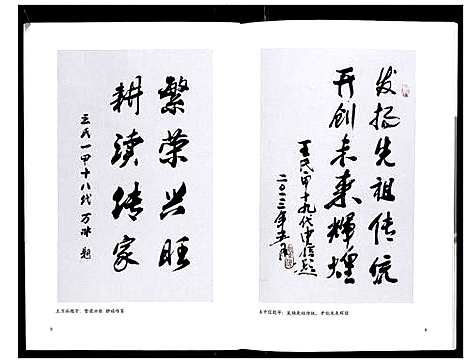 繁荣兴旺
耕读传家
王氏一甲十八代 万冰 题
王万冰题字：繁荣兴旺 耕读传家
发扬先祖传统
开创未来辉煌
王氏一甲十九代 信题
二〇一三年五月
信题字：发扬先祖传统，开创未来辉煌